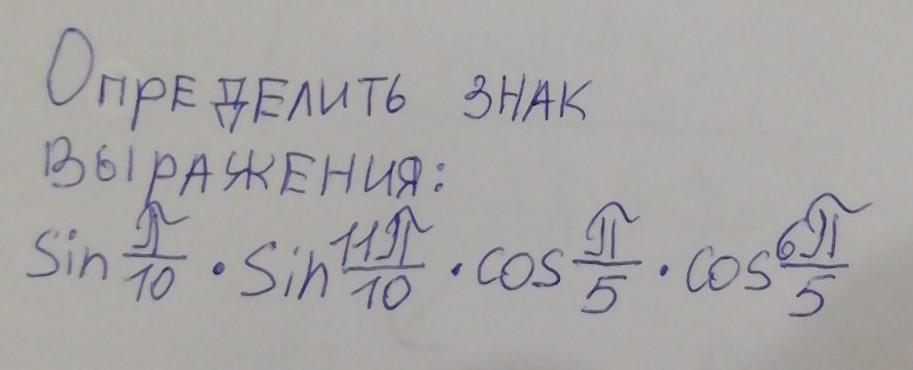 Определить знак
выражения:
Sin π/10 · Sin 11π/10 · cos π/5 · cos 6π/5